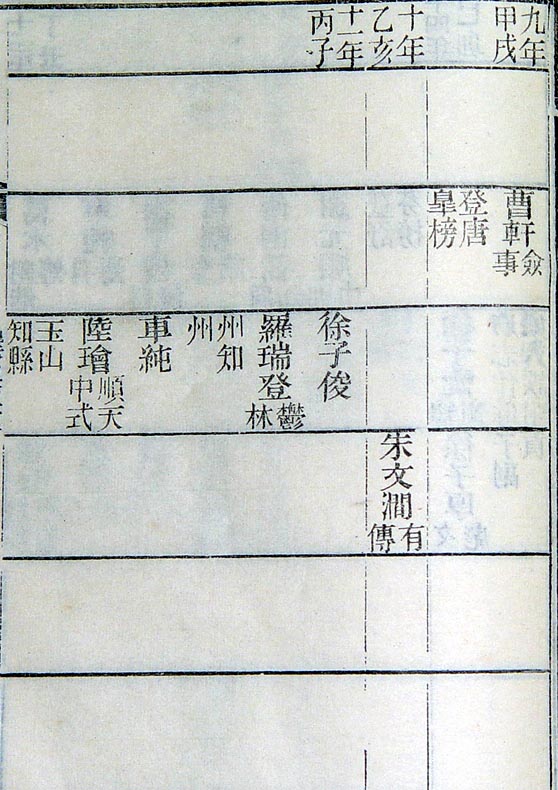 九年
甲戌
十年
乙亥
十一年
丙子
曹軒僉事
登唐
皐榜
徐子俊
羅瑞登鬱林
州知
州
車純
陸璯順天中式
玉山
知縣
朱文澗有傳